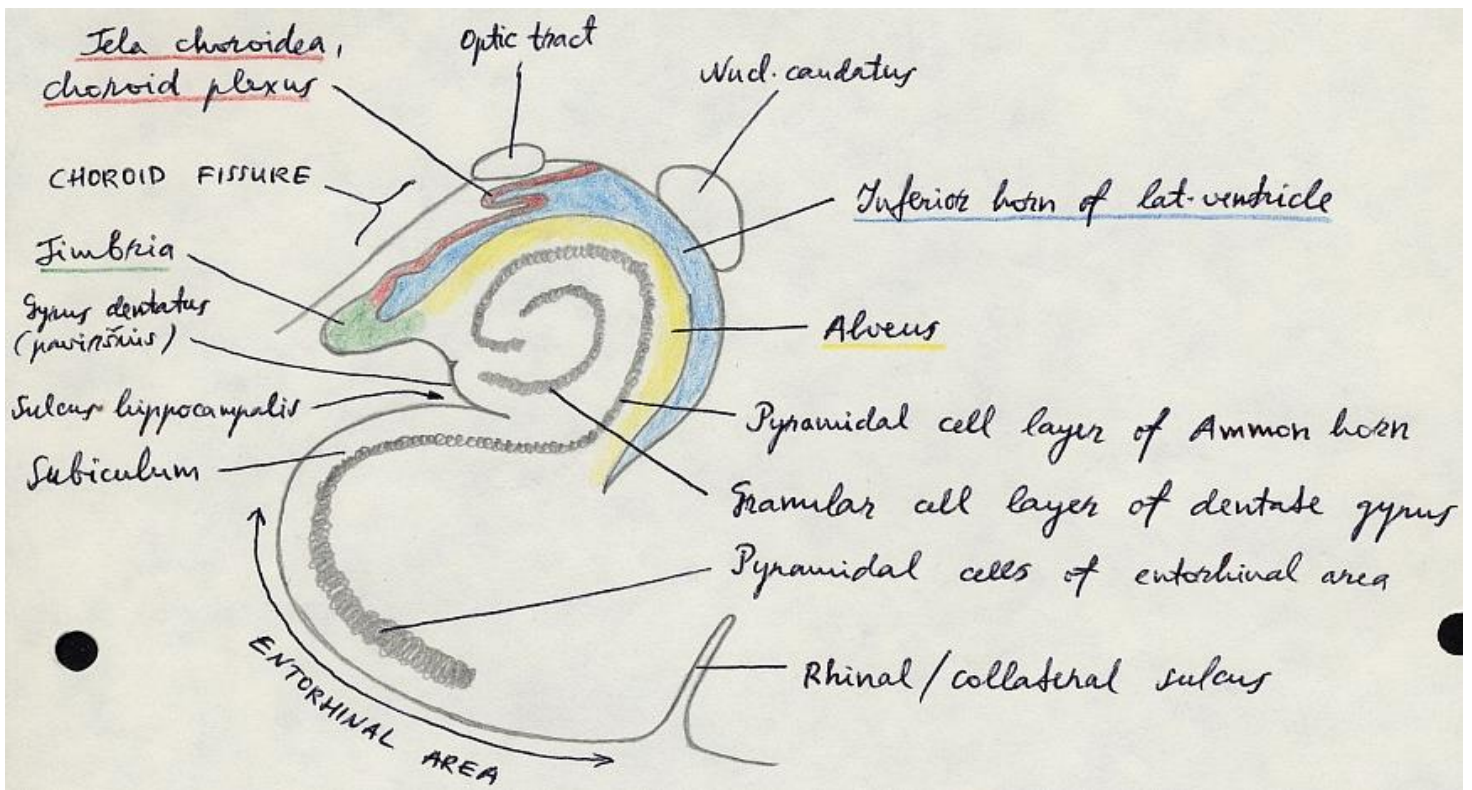 Tela choroidea,
choroid plexus
Optic tract
Nucl. caudatus
CHOROID FISSURE
Inferior horn of lat. ventricle
Fimbria
Gyrus dentatus
(paviršius)
Alveus
Sulcus hippocampalis
Pyramidal cell layer of Ammon horn
Subiculum
Granular cell layer of dentate gyrus
Pyramidal cells of entorhinal area
Rhinal/collateral sulcus
ENTORHINAL AREA